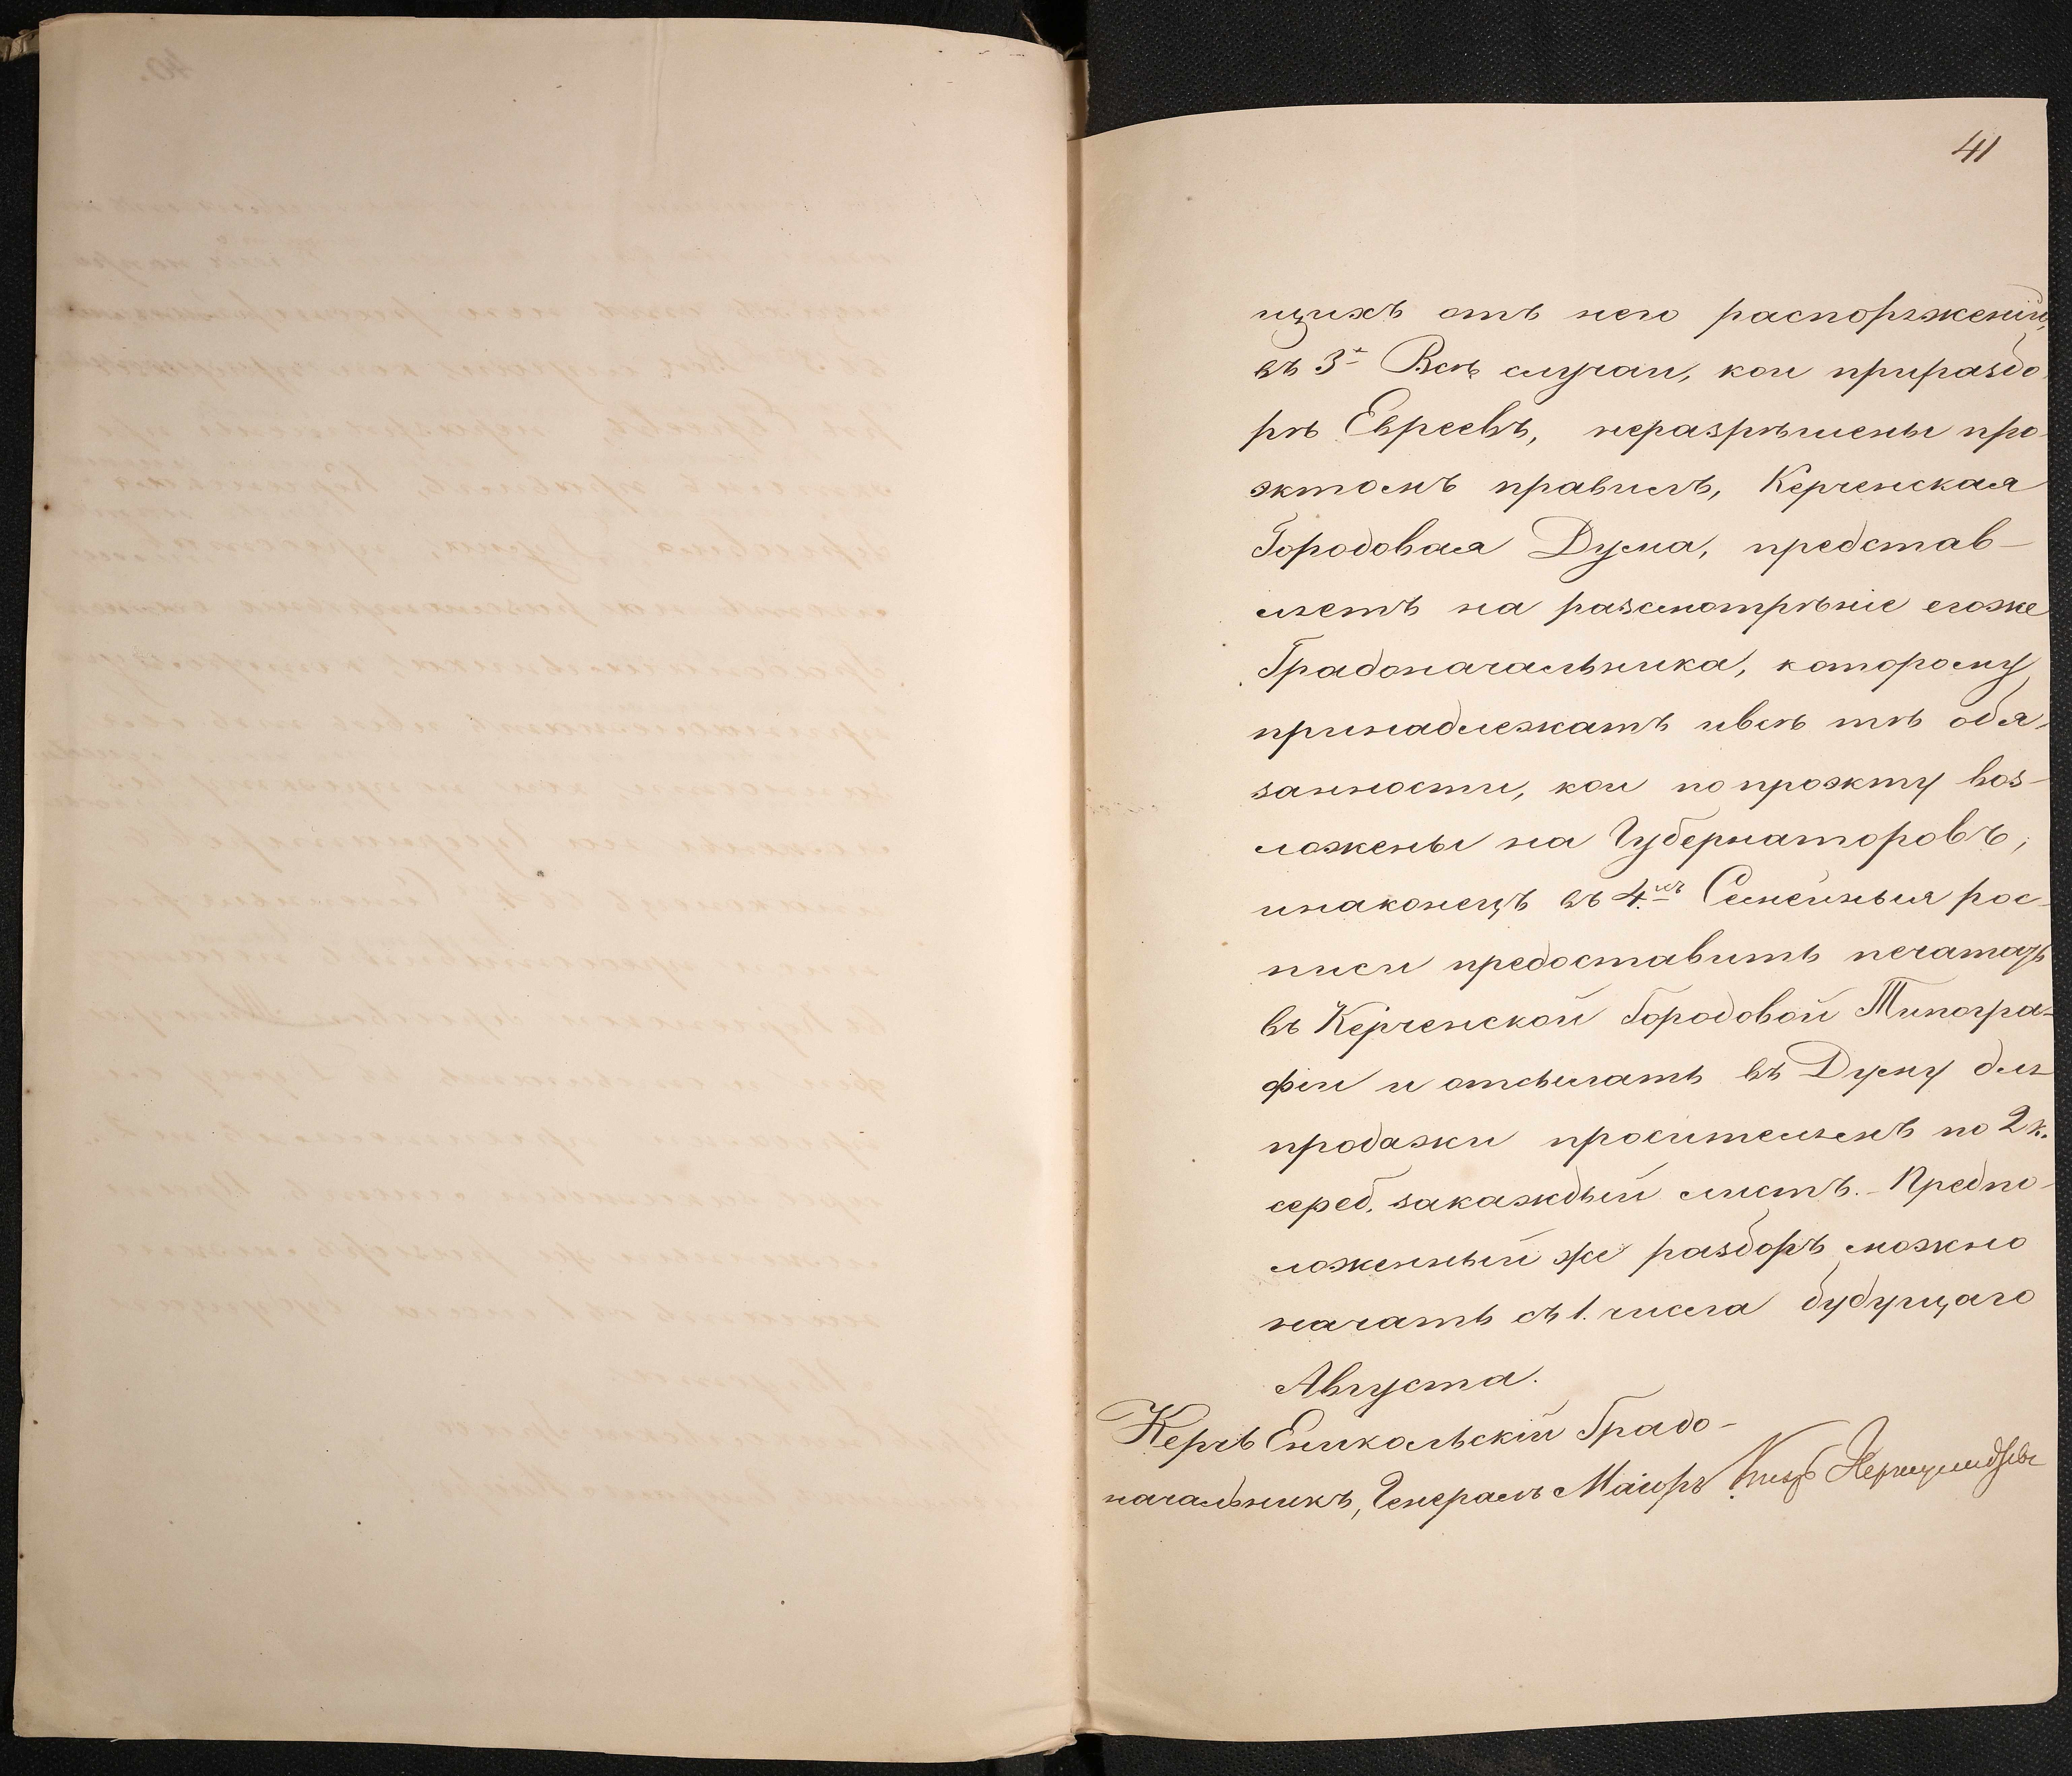 41
щихъ отъ него распоряженій,
въ 3х Всѣ случаи, кои приразбо-
рѣ Евреевъ, неразрѣшены про-
эктомъ правилъ, Керченская
Городовая Дума, представ-
ляетъ на разсмотрѣніе егоже
Градоначальника, которому
принадлежатъ ивсѣ тѣ обя-
занности, кои попроэкту воз-
ложены на Губернаторовъ,
инаконецъ въ 4.хъ Семейныя рос-
писи предоставить печатать
въ Керченской Городовой Типогра-
фіи и отсылать въ Думу для
продажи просителямъ по 2 к.
сереб. закаждый листъ. - Предпо-
ложенный же разборъ можно
начать съ 1. числа будущаго
Августа.
Керчь Еникольскій Градо-
начальникъ, Генералъ Маіоръ Князь Херхеулидзевъ